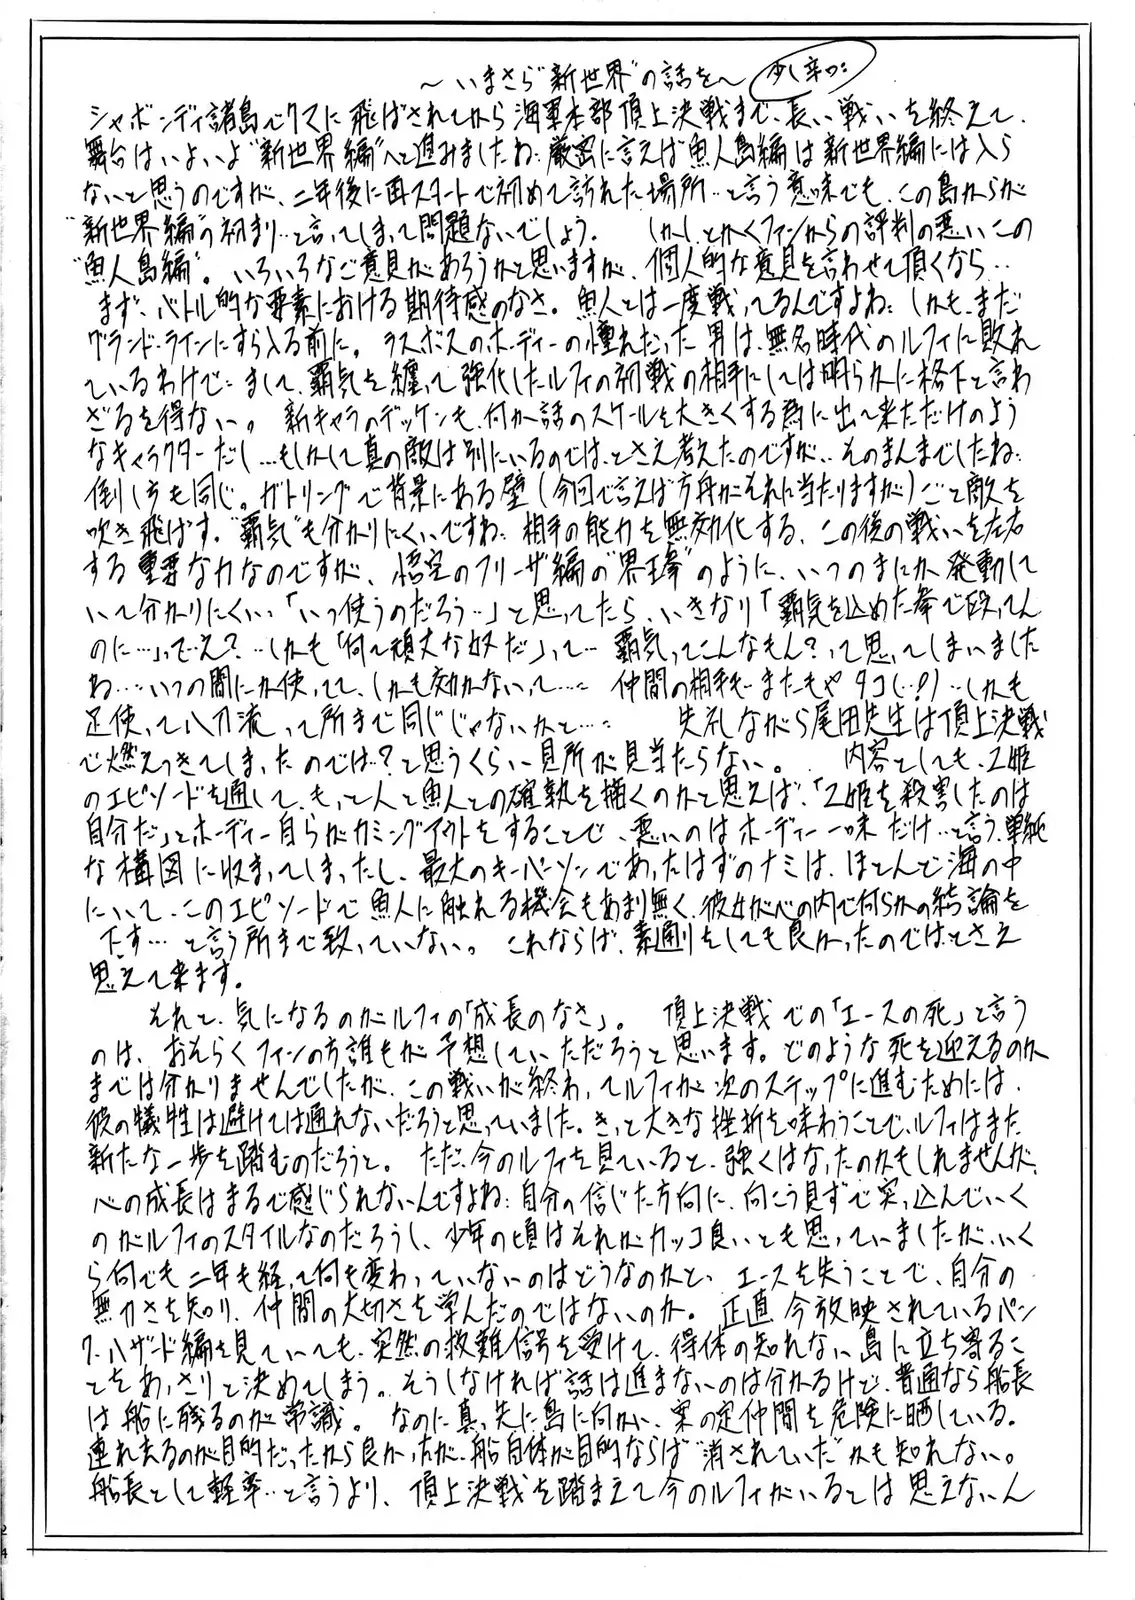 ～いまさら"新世界"の話を～ 少し辛口
シャボンディ諸島でクマに飛ばされてから海軍本部頂上決戦まで、長い戦いを終えて、
舞台はいよいよ"新世界編"へと進みましたね… 厳密に言えば魚人島編は新世界編には入ら
ないと思うのですが、二年後に再スタートで初めて訪れた場所…と言う意味でも、この島からが
"新世界編"の初まり…と言ってしまって問題ないでしょう。 しかし、とかくファンからの評判の悪いこの
"魚人島編"。いろいろなご意見があろうかと思いますが、個人的な意見を言わせて頂くなら…
まず、バトル的な要素における期待感のなさ。魚人とは一度戦ってるんですよね… しかも、まだ
グランドラインにすら入る前に。 ラスボスのホーディーの憧れだった男は、無名時代のルフィに敗れ
ているわけで… まして、覇気を纏って強化したルフィの初戦の相手にしては明らかに格下と言わ
ざるを得ない。 新キャラのデッケンも、何か話のスケールを大きくする為に出て来ただけのよう
なキャラクターだし…もしかして真の敵は別にいるのでは、とさえ考えたのですが… そのまんまでしたね…
倒し方も同じ。ガトリングで背景にある壁（今回で言えば方舟がそれに当たりますが）ごと敵を
吹き飛ばす。"覇気"も分かりにくいですね… 相手の能力を無効化する、この後の戦いを左右
する重要な力なのですが、悟空のフリーザ編の"界王拳"のように、いつのまにか発動して
いて分かりにくい…「いつ使うのだろう…」と思ってたら、いきなり「覇気を込めた拳で殴ってん
のに…」って…え？…しかも「何て頑丈な奴だ」って… 覇気ってこんなもん？って思ってしまいました
ね…いつの間にか使ってて、しかも効かないって… 仲間の相手もまたもやタコ(…!?)…しかも
足使って八刀流って所まで同じじゃないかと… 失礼ながら尾田先生は頂上決戦
で燃えつきてしまったのでは？と思うくらい見所が見当たらない。 内容としても、乙姫
のエピソードを通して、もっと人と魚人との確執を描くのかと思えば、「乙姫を殺害したのは
自分だ」とホーディー自らがカミングアウトをすることで、悪いのはホーディー一味だけ…と言う単純
な構図に収まってしまったし、最大のキーパーソンであったはずのナミは、ほとんど海の中
にいて、このエピソードで魚人に触れる機会もあまり無く、彼女が心の内で何らかの結論を
下す…と言う所まで致っていない。 これならば、素通りをしても良かったのでは、とさえ
思えて来ます。
それと、気になるのがルフィの「成長のなさ」。 頂上決戦での「エースの死」と言う
のは、おそらくファンの方誰もが予想していただろうと思います。どのような死を迎えるのか
までは分かりませんでしたが、この戦いが終わってルフィが次のステップに進むためには、
彼の犠牲は避けては通れないだろうと思っていました。きっと大きな挫折を味わうことで、ルフィはまた
新たな一歩を踏むのだろうと。 ただ、今のルフィを見ていると、強くはなったのかもしれませんが、
心の成長はまるで感じられないんですよね… 自分の信じた方向に、向こう見ずで突っ込んでいく
のがルフィのスタイルなのだろうし、少年の頃はそれがカッコ良いとも思っていましたが、いく
ら何でも二年も経って何も変わっていないのはどうなのかと、 エースを失うことで、自分の
無力さを知り、仲間の大切さを学んだのではないのか。 正直、今放映されているパン
ク・ハザード編を見ていても、突然の救難信号を受けて、得体の知れない島に立ち寄るこ
とをあっさりと決めてしまう。そうしなければ話は進まないのは分かるけど、普通なら船長
は船に残るのが常識。 なのに真っ先に島に向かい、案の定仲間を危険に晒している。
連れ去るのが目的だったから良かったが、船自体が目的ならば"消されていた"かも知れない。
船長として軽率…と言うより、頂上決戦を踏まえて今のルフィがいるとは思えないん
24